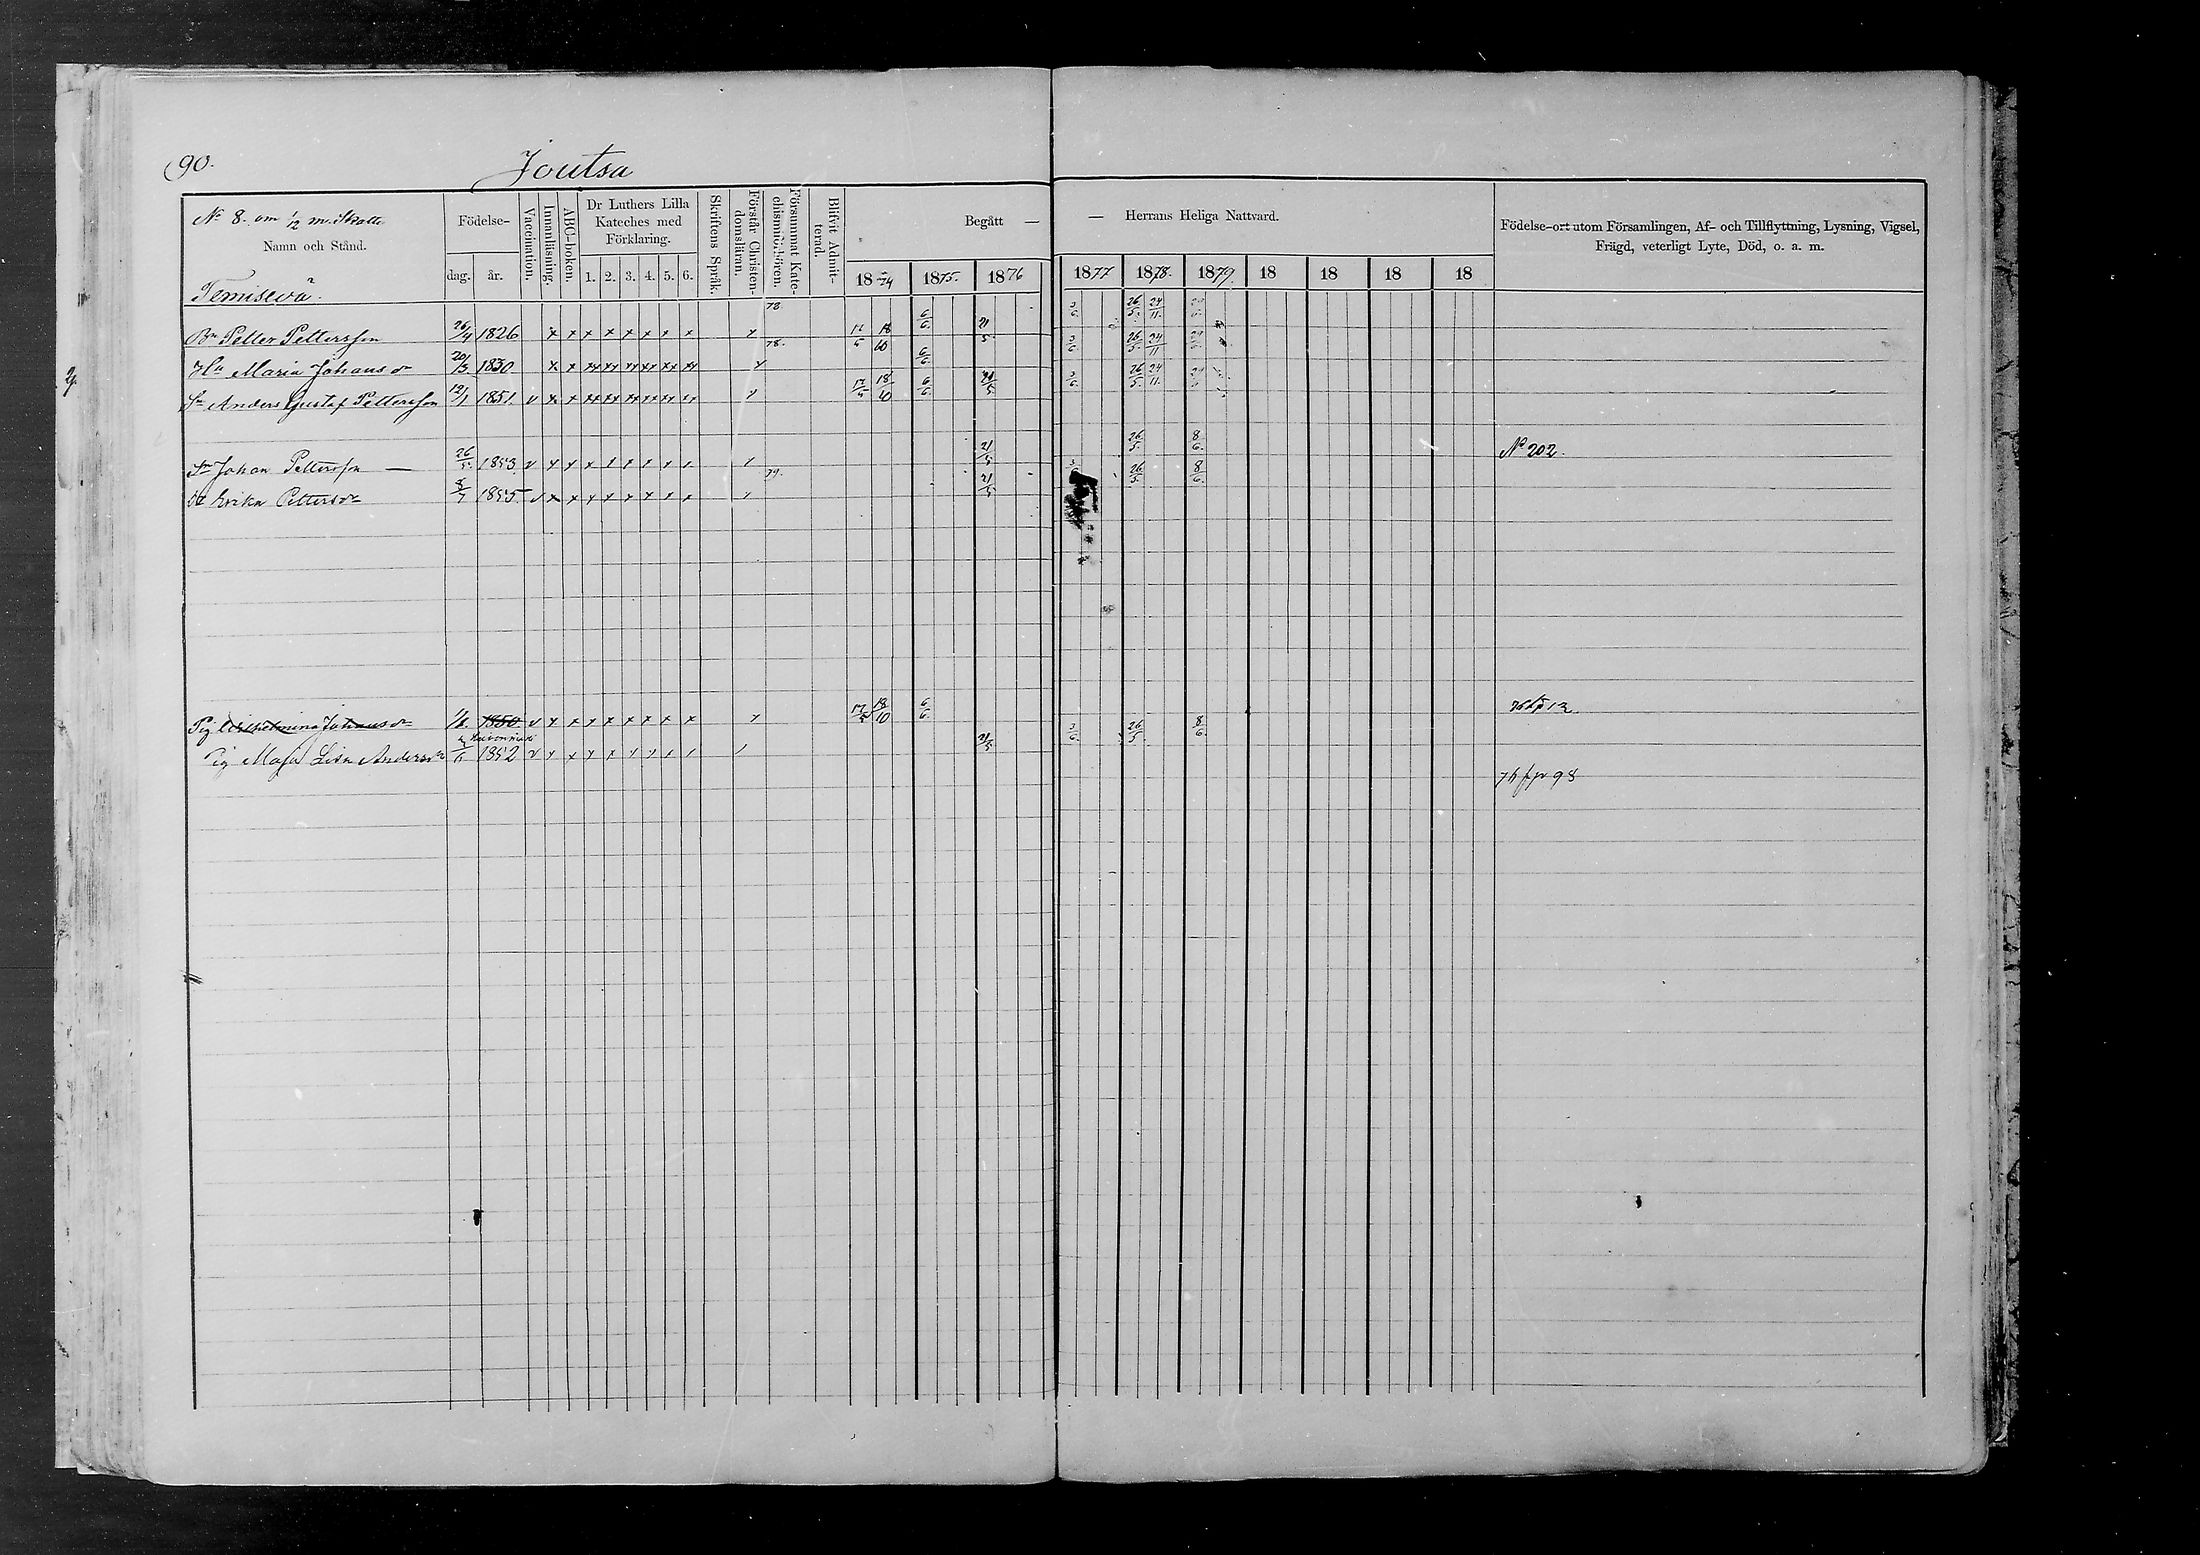 90.
Joutsa
No 8. om 1/2 m. skatt
Namn och Stånd.
Födelse-
dag. år.
Vaccination.
Innanläsning.
ABC-boken.
Dr Luthers Lilla Kateches med Förklaring.
1. 2. 3. 4. 5. 6.
Skriftens Språk.
Förstår Christendomsläran.
Försummat Katechismiförhören.
Blifvit Admitterad.
Begått — — Herrans Heliga Nattvard.
1874 1875. 1876 1877 1878. 1879. 18 18 18 18
Födelse-ort utom Församlingen, Af- och Tillflyttning, Lysning, Vigsel,
Frägd, veterligt Lyte, Död, o. a. m.
Temisevä.
78. 3/6 26/5. 24/11.
Bn Petter Pettersson 26/4 1826 x x x x x x x x x 17/5 18/10 6/6. 21/5
78. 3/6 26/5. 24/11
Hu Maria Johansdr 20/3 1830 x x xx xx xx xx xx xx x 6/6.
3/6 26/5. 24/11.
Sn Anders Gustaf Pettersson 12/1 1851. v x x xx xx xx xx xx xx x 17/5 18/10 6/6 21/5
26/5. 8/6. No 202.
Sn Johan Pettersson — 26/5. 1853. v x x x x x x x x x 21/5
79. 26/5. 8/6.
Dr Erika Pettersdr 8/7 1855. v x x x x x x x x x 21/5
Pig Wilhelmina Johansdr 1/8. 1850. v x x x x x x x x x 17/5 18/10 6/6.
3/6. 26/5. 8/6.
Pig Maja Lisa Andersdr 1852 v x x x x x x x x 21/5
98